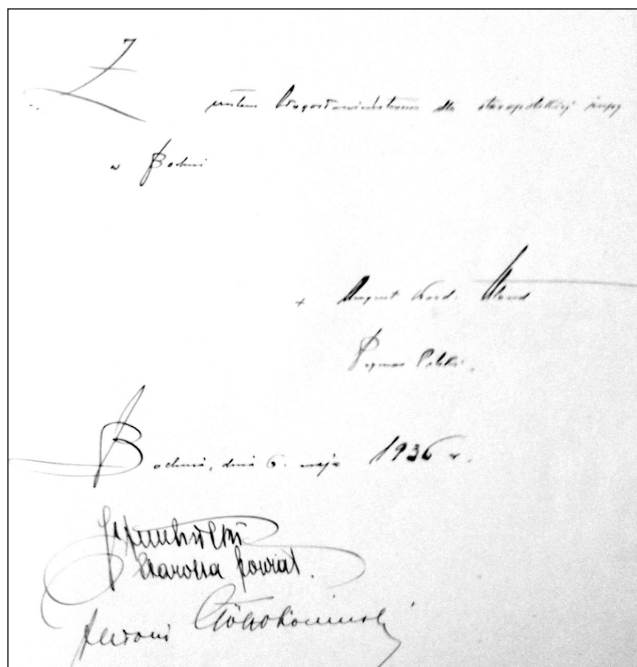 Z
miłem błogosławieństwem dla staropolskiej żupy
w Bochni
+ August Kard. Hlond
Prymas Polski.
Bochnia, dnia 6. maja 1936 r.
Starosta powiat.
Antoni